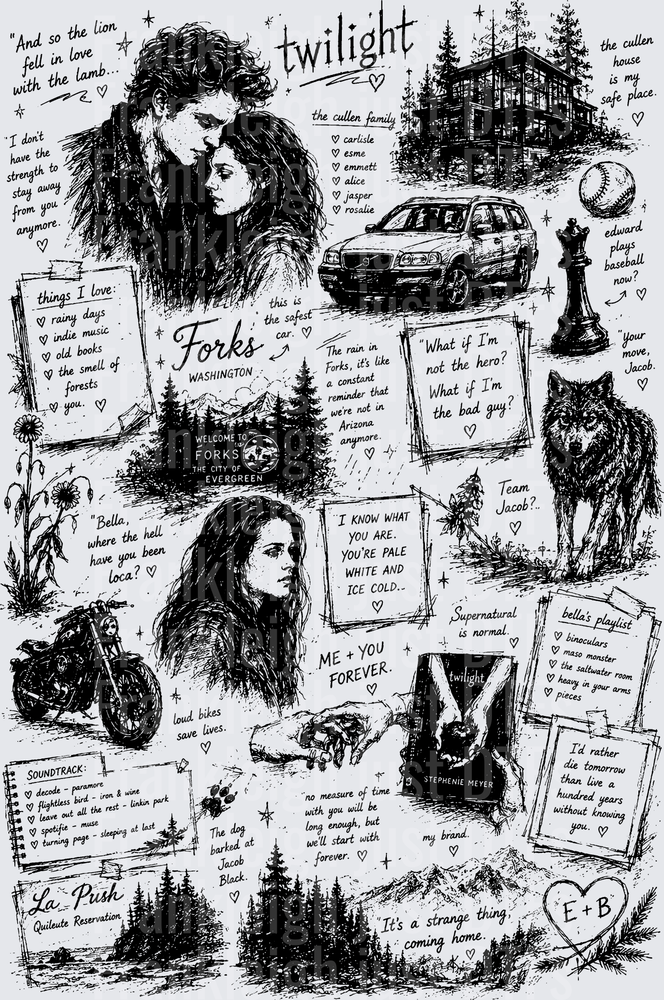 "And so the lion
fell in love
with the lamb...
twilight
the cullen
house
is my
safe place.
the cullen family
carlisle
esme
emmett
alice
jasper
rosalie
"I don't
have the
strength to
stay away
from you
anymore.
edward
plays
baseball
now?
things I love:
rainy days
indie music
old books
the smell of
forests
you.
this is
the safest
car.
Forks
WASHINGTON
WELCOME TO
FORKS
THE CITY OF
EVERGREEN
The rain in
Forks, it's like
a constant
reminder that
we're not in
Arizona
anymore.
"What if I'm
not the hero?
What if I'm
the bad guy?
"Your
move,
Jacob.
"Bella,
where the hell
have you been
loca?
I KNOW WHAT
YOU ARE.
YOU'RE PALE
WHITE AND
ICE COLD..
Team
Jacob?..
Supernatural
is normal.
bella's playlist
binoculars
maso monster
the saltwater room
heavy in your arms
pieces
ME + YOU
FOREVER.
loud bikes
save lives.
twilight
STEPHENIE MEYER
I'd rather
die tomorrow
than live a
hundred years
without knowing
you.
SOUNDTRACK:
decode - paramore
flightless bird - iron & wine
leave out all the rest - linkin park
spotifie - muse
turning page - sleeping at last
The dog
barked at
Jacob
Black.
no measure of time
with you will be
long enough, but
we'll start with
forever.
my brand.
La Push
Quileute Reservation
It's a strange thing,
coming home.
E + B
Frankleigh just DTFs